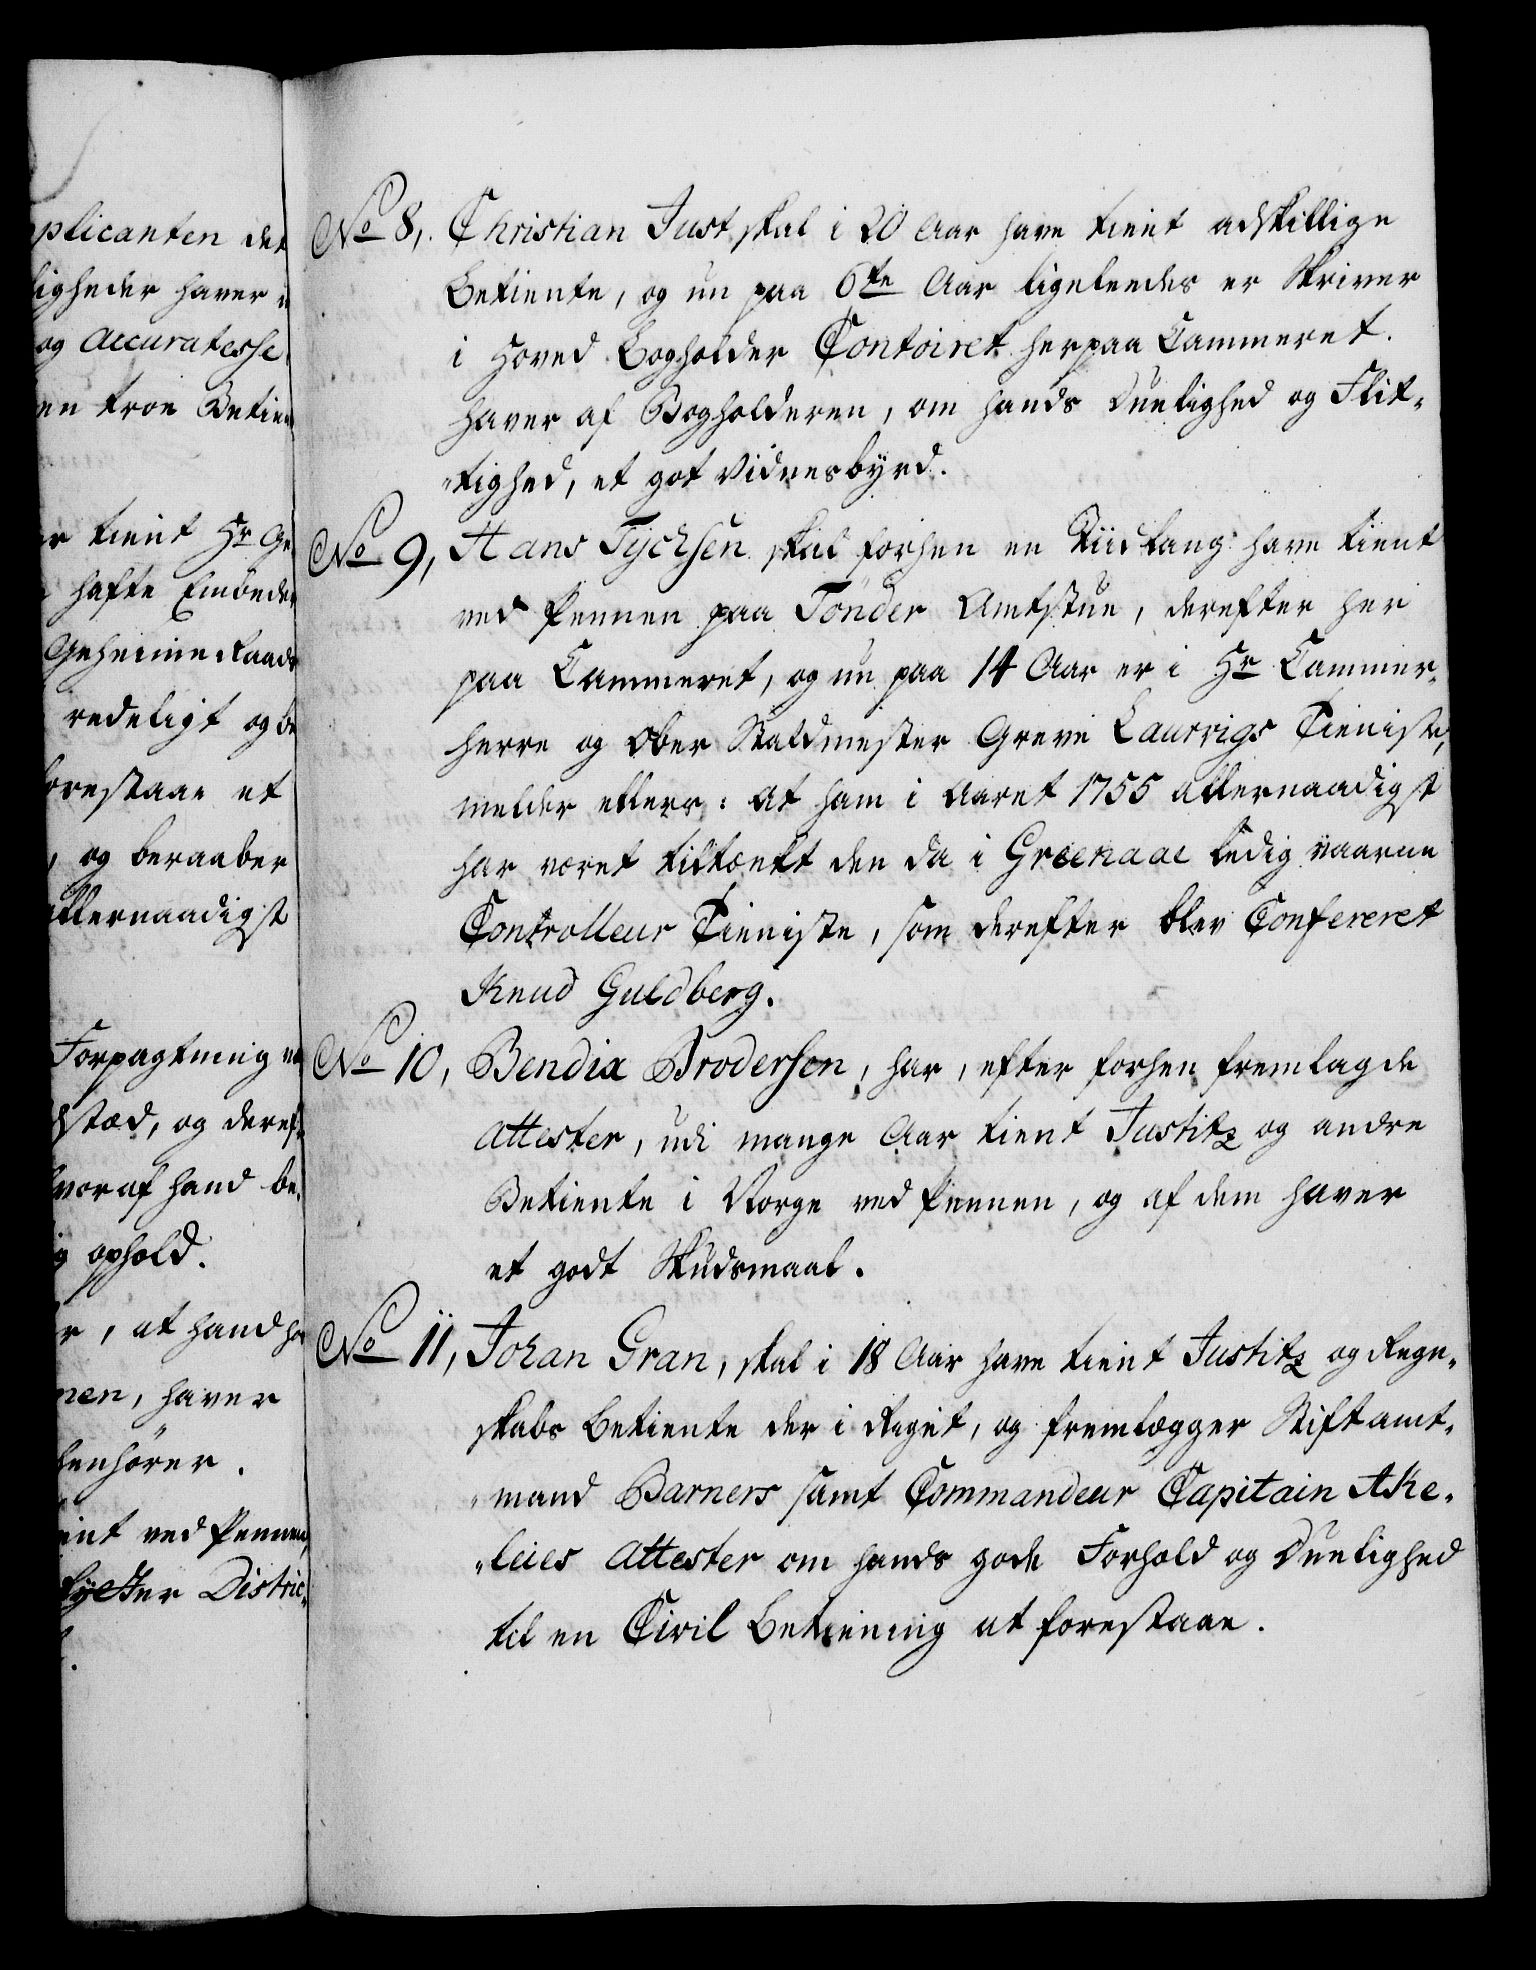 plicanten det
ligheder haver i
og Accuratesse
en troe Betien
er tient Hr. Ge
hafte Embeder
Geheime Raads
redeligt og be
forestaae et
, og beraaber
allernaadigst
Forpagtning
stæd, og deref
hvoraf hand be
ophold.
r, at hand ha
nen, haver
henhører.
ient ved Pennen,
Distric
No 8, Christian Just skal i 20 Aar have tient adskillige
Betiente, og nu paa 6te Aar ligeleedes er Skriver
i Hoved Bogholder Contoiret her paa Cammeret.
haver af Bogholderen, om hands Duelighed og Flit-
tighed, et got Vidnesbyrd.
No 9, Hans Tychsen skal forhen en Tiid lang have tient
ved Pennen paa Tønder Amtstue, derefter her
paa Cammeret, og nu paa 14 Aar er i Hr Cammer-
herre og Ober Staldmester Greve Laurvigs Tieniste,
melder ellers: At ham i Aaret 1755 allernaadigst
har været tiltænkt den da i Greenaae ledig værende
Controlleur Tieniste, som derefter blev Confereret
Knud Guldberg.
No 10, Bendix Brodersen, har, efter forhen fremlagde
Attester, udi mange Aar tient Justitz og andre
Betiente i Norge ved Pennen, og af dem haver
et godt Skudsmaal.
No 11, Johan Gran, skal i 18 Aar have tient Justitz og Regn-
skabs Betiente der i Riget, og fremlægger Stiftamt-
mand Barners samt Commandeur Capitain Ake-
leies Attester om hands gode Forhold og Duelighed
til en Civil Betiening at forestaae.